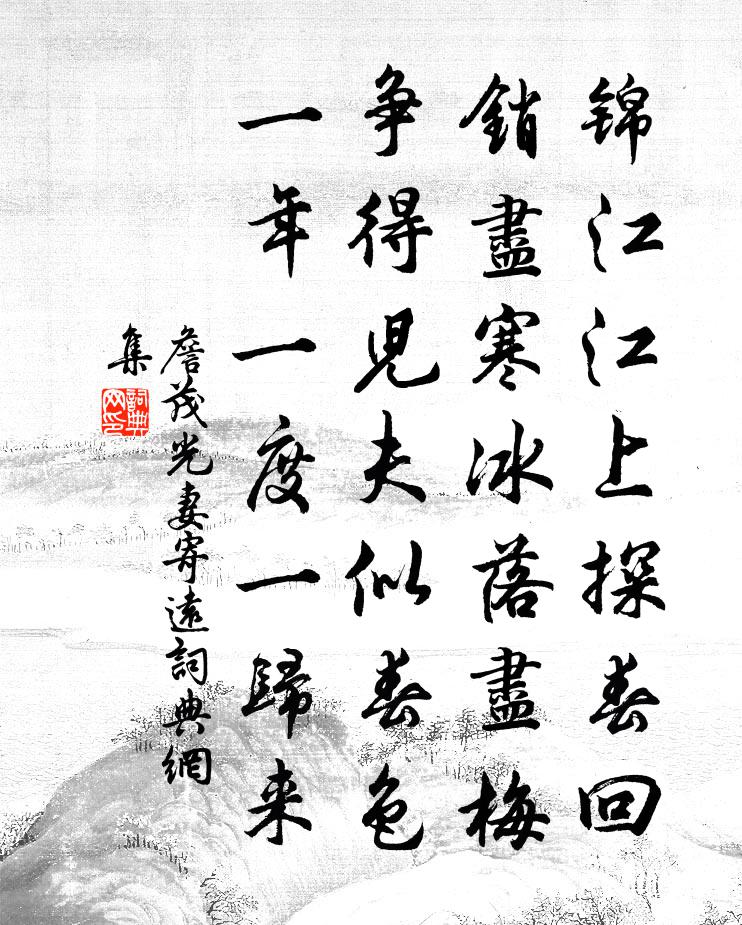 锦江江上探春回
銷盡寒冰落盡梅
争得兒夫似春色
一年一度一歸来
詹茂光妻寄遠詞典網
集
詞典
网印